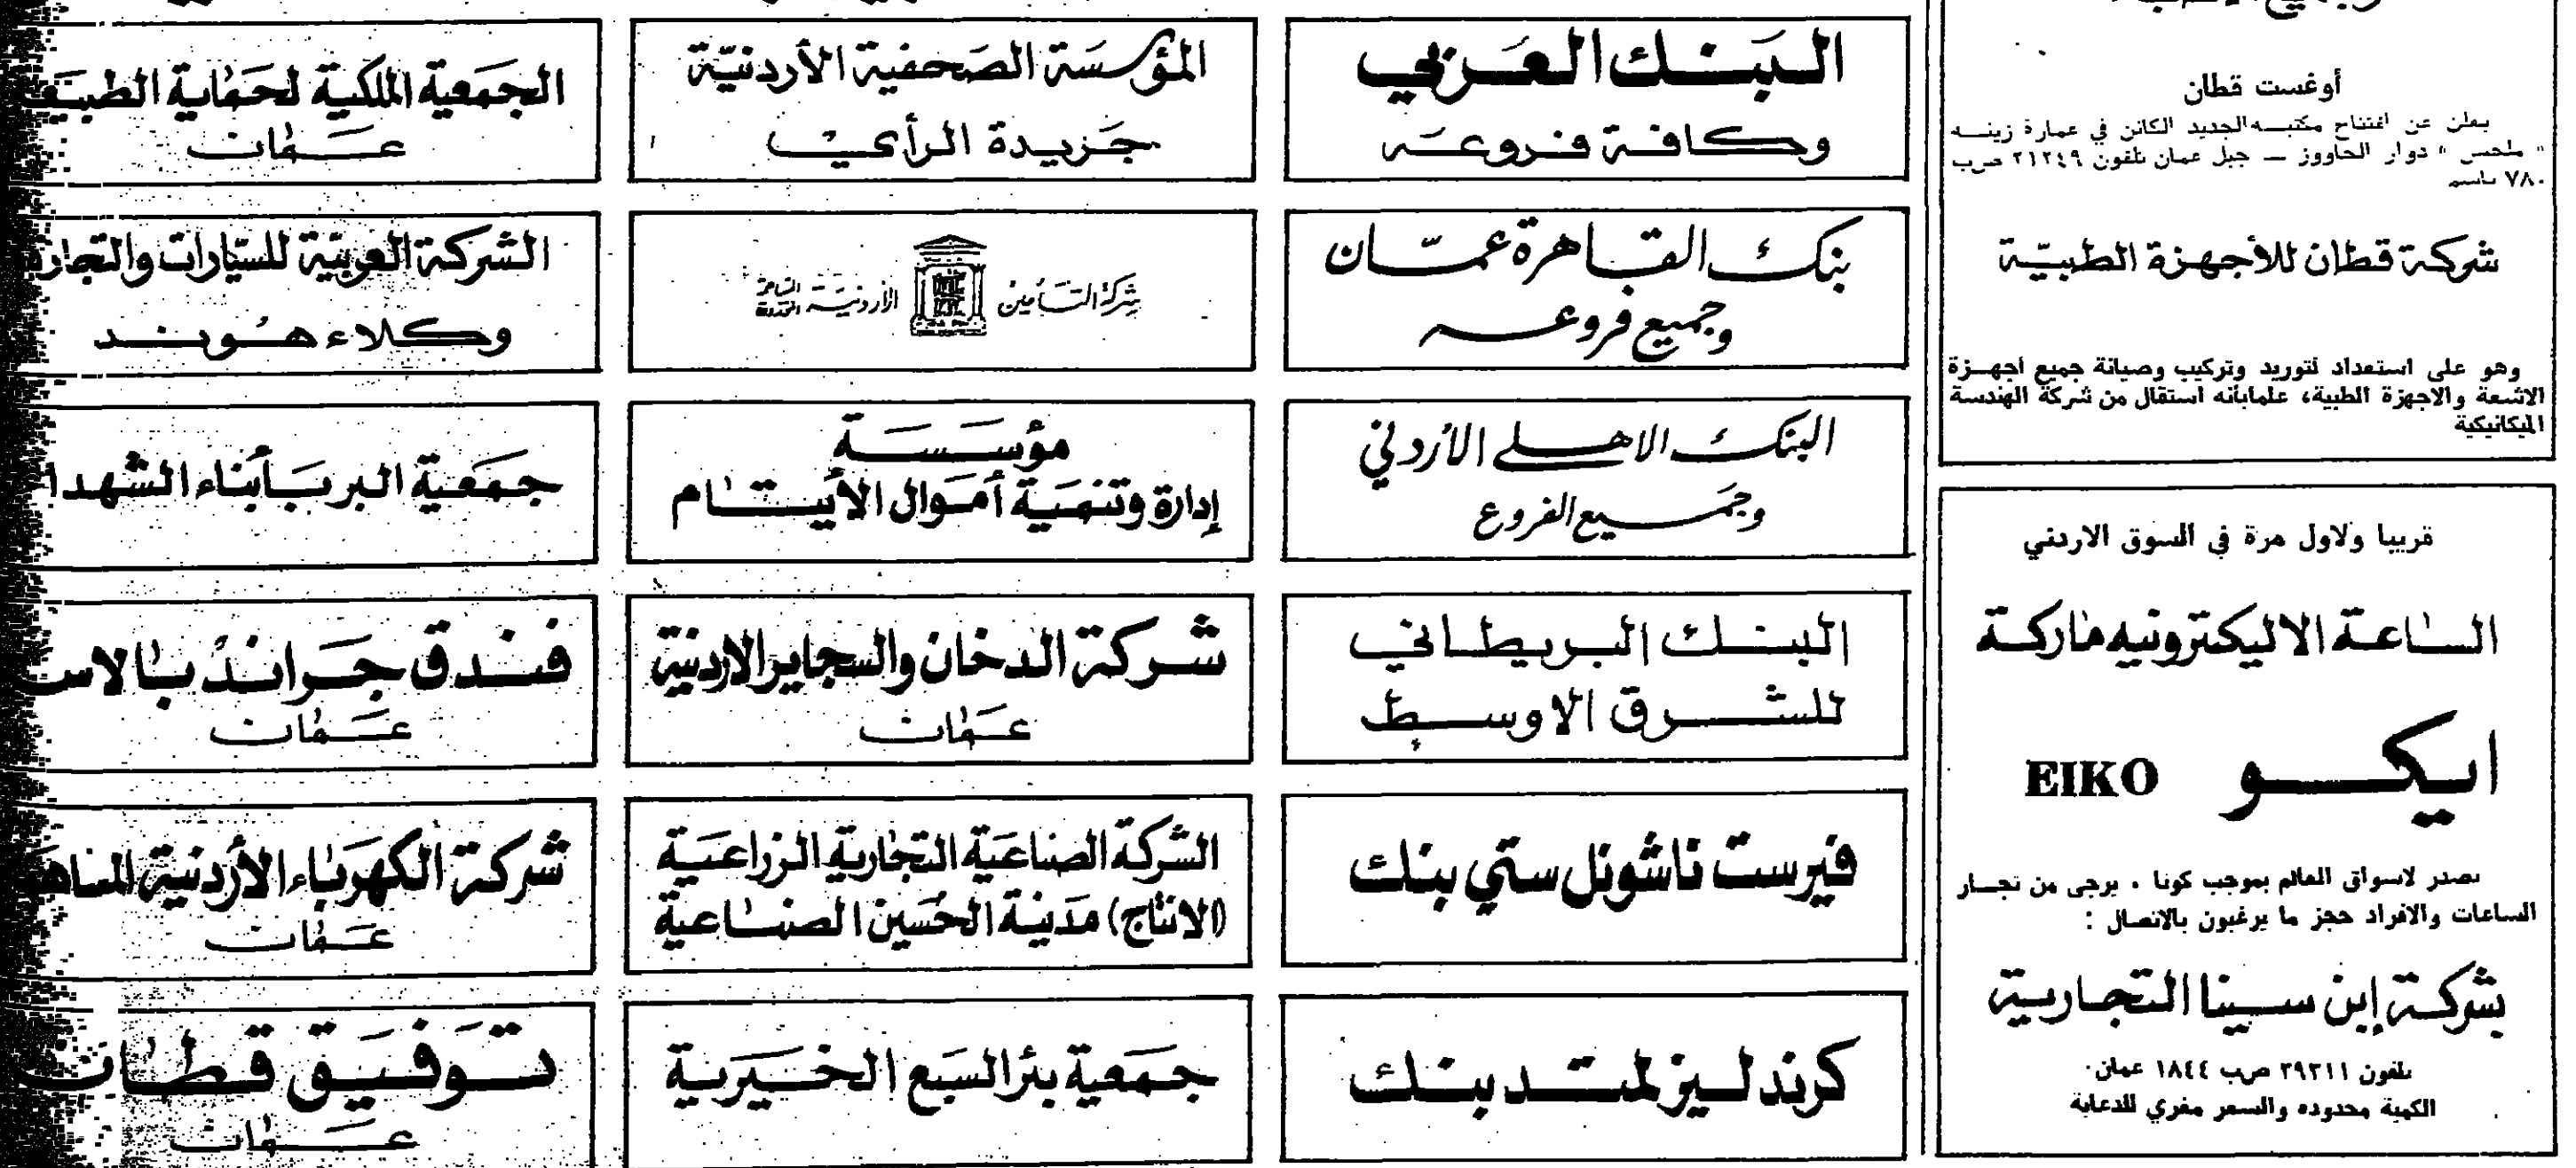 أوغست قطان
يعلن عن افتتاح مكتبه الجديد الكائن في عمارة زينه
" ملحس " دوار الحاووز — جبل عمان تلفون ٢١٢٤٩ ص.ب
٧٨٠ باسم
شركة قطان للأجهزة الطبيّة
وهو على استعداد لتوريد وتركيب وصيانة جميع اجهزة
الاشعة والاجهزة الطبية، علمابأنه استقال من شركة الهندسة
الميكانيكية
قريبا ولاول مرة في السوق الاردني
الساعة الاليكترونيه ماركة
ايكو EIKO
تصدر لاسواق العالم بموجب كوتا . يرجى من تجار
الساعات والافراد حجز ما يرغبون بالاتصال :
بشركة إبن سينا التجارية
تلفون ٣٩٢١١ ص.ب ١٨٤٤ عمان.
الكمية محدوده والسعر مغري للدعاية
البنك العربي
وكافة فروعه
بنك القاهرة عمّان
وجميع فروعه
البنك الاهلي الأردني
وجميع الفروع
البنك البريطاني
للشرق الاوسط
فيرست ناشونل ستي بنك
كرندليز لمتد بنك
المؤسسة الصحفية الأردنيّة
جريدة الرأي
شركة التأمين الأردنية المساهمة المحدودة
مؤسسة
إدارة وتنمية أموال الأيتام
شركة الدخان والسجاير الاردنية
عمان
الشركة الصناعية التجارية الزراعية
(الانتاج) مدينة الحسين الصناعية
جمعية بئر السبع الخيرية
الجمعية الملكية لحماية
عمان
الشركة العربية للسيارات
وكلاء هوندا
جمعية البر بأبناء
فندق جراند
عمان
شركة الكهرباء الأردنية
عمان
توفيق قطان
عمان